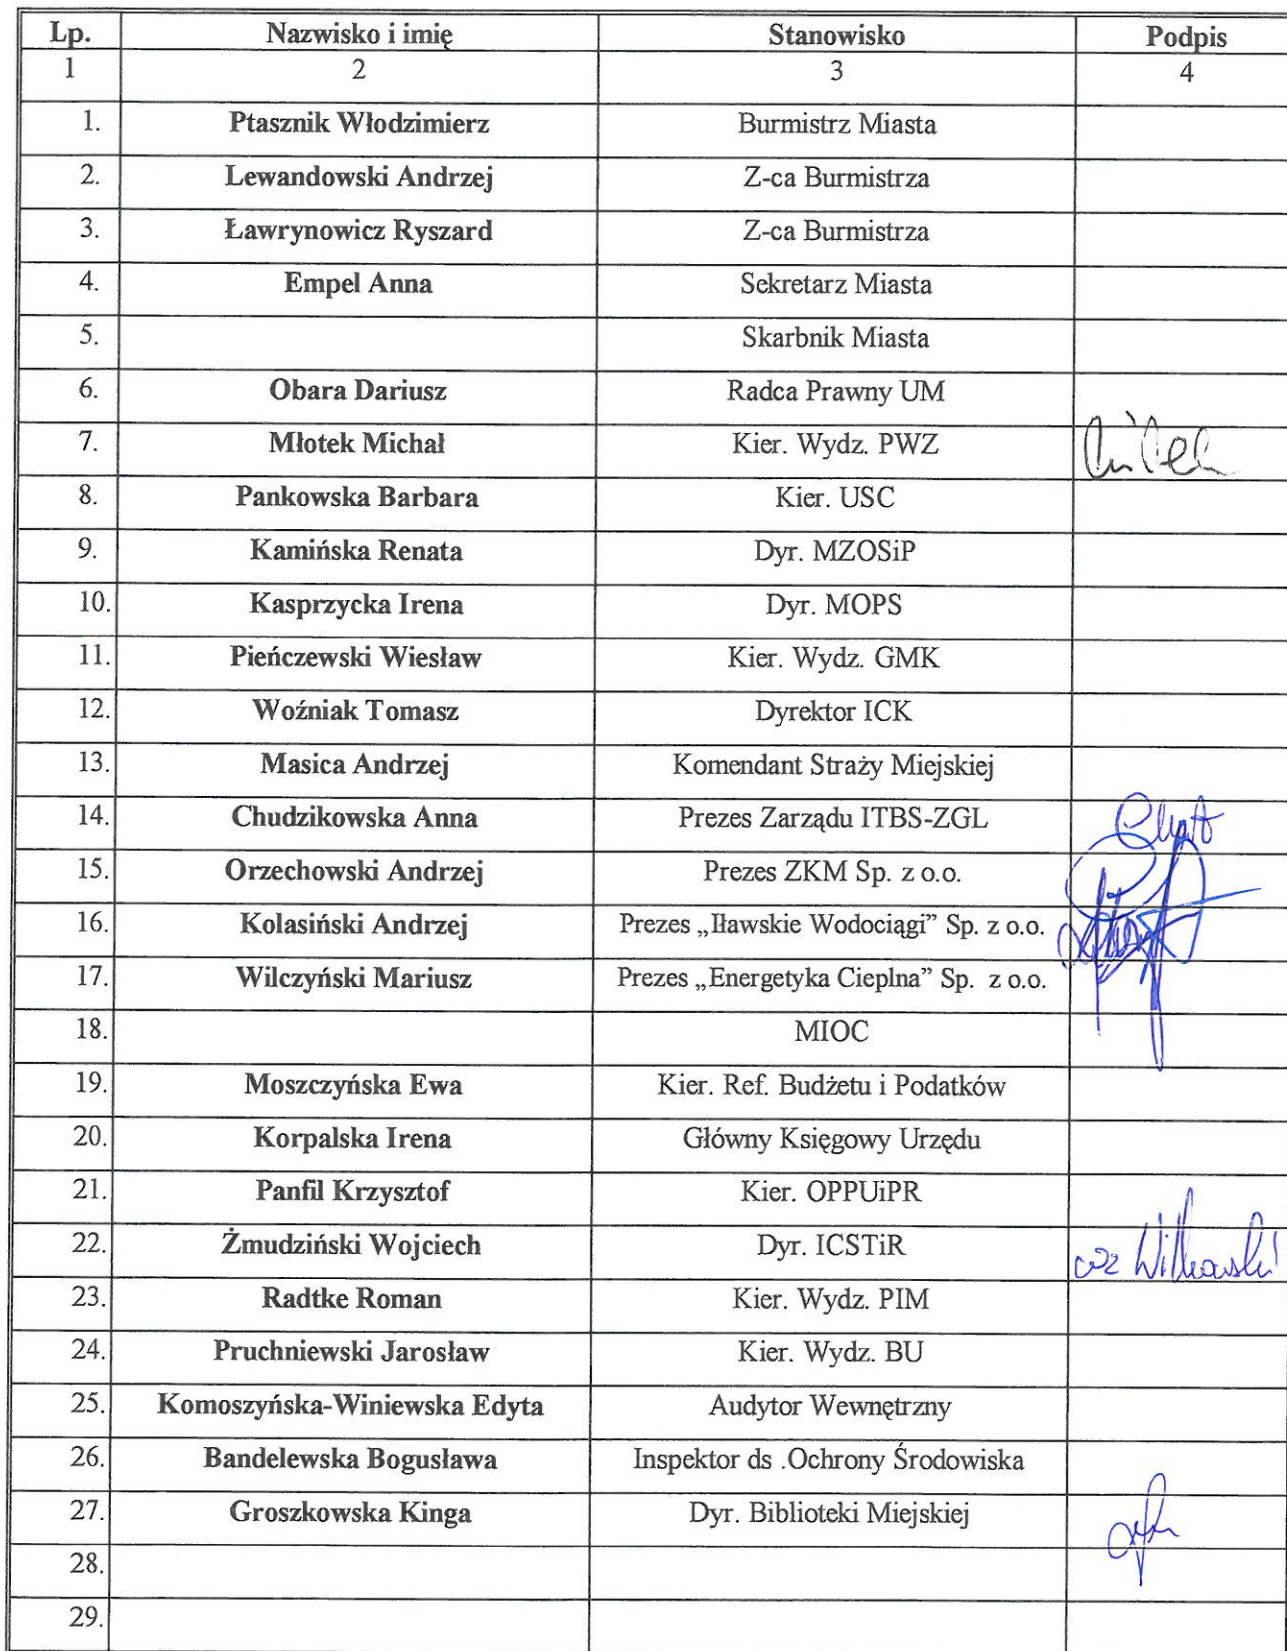 Lp. Nazwisko i imię Stanowisko Podpis
1 2 3 4
1. Ptasznik Włodzimierz Burmistrz Miasta
2. Lewandowski Andrzej Z-ca Burmistrza
3. Ławrynowicz Ryszard Z-ca Burmistrza
4. Empel Anna Sekretarz Miasta
5. Skarbnik Miasta
6. Obara Dariusz Radca Prawny UM
7. Młotek Michał Kier. Wydz. PWZ
8. Pankowska Barbara Kier. USC
9. Kamińska Renata Dyr. MZOSiP
10. Kasprzycka Irena Dyr. MOPS
11. Pieńczewski Wiesław Kier. Wydz. GMK
12. Woźniak Tomasz Dyrektor ICK
13. Masica Andrzej Komendant Straży Miejskiej
14. Chudzikowska Anna Prezes Zarządu ITBS-ZGL
15. Orzechowski Andrzej Prezes ZKM Sp. z o.o.
16. Kolasiński Andrzej Prezes „Iławskie Wodociągi” Sp. z o.o.
17. Wilczyński Mariusz Prezes „Energetyka Cieplna” Sp. z o.o.
18. MIOC
19. Moszczyńska Ewa Kier. Ref. Budżetu i Podatków
20. Korpalska Irena Główny Księgowy Urzędu
21. Panfil Krzysztof Kier. OPPUiPR
22. Żmudziński Wojciech Dyr. ICSTiR
23. Radtke Roman Kier. Wydz. PIM
24. Pruchniewski Jarosław Kier. Wydz. BU
25. Komoszyńska-Winiewska Edyta Audytor Wewnętrzny
26. Bandelewska Bogusława Inspektor ds .Ochrony Środowiska
27. Groszkowska Kinga Dyr. Biblioteki Miejskiej
28.
29.